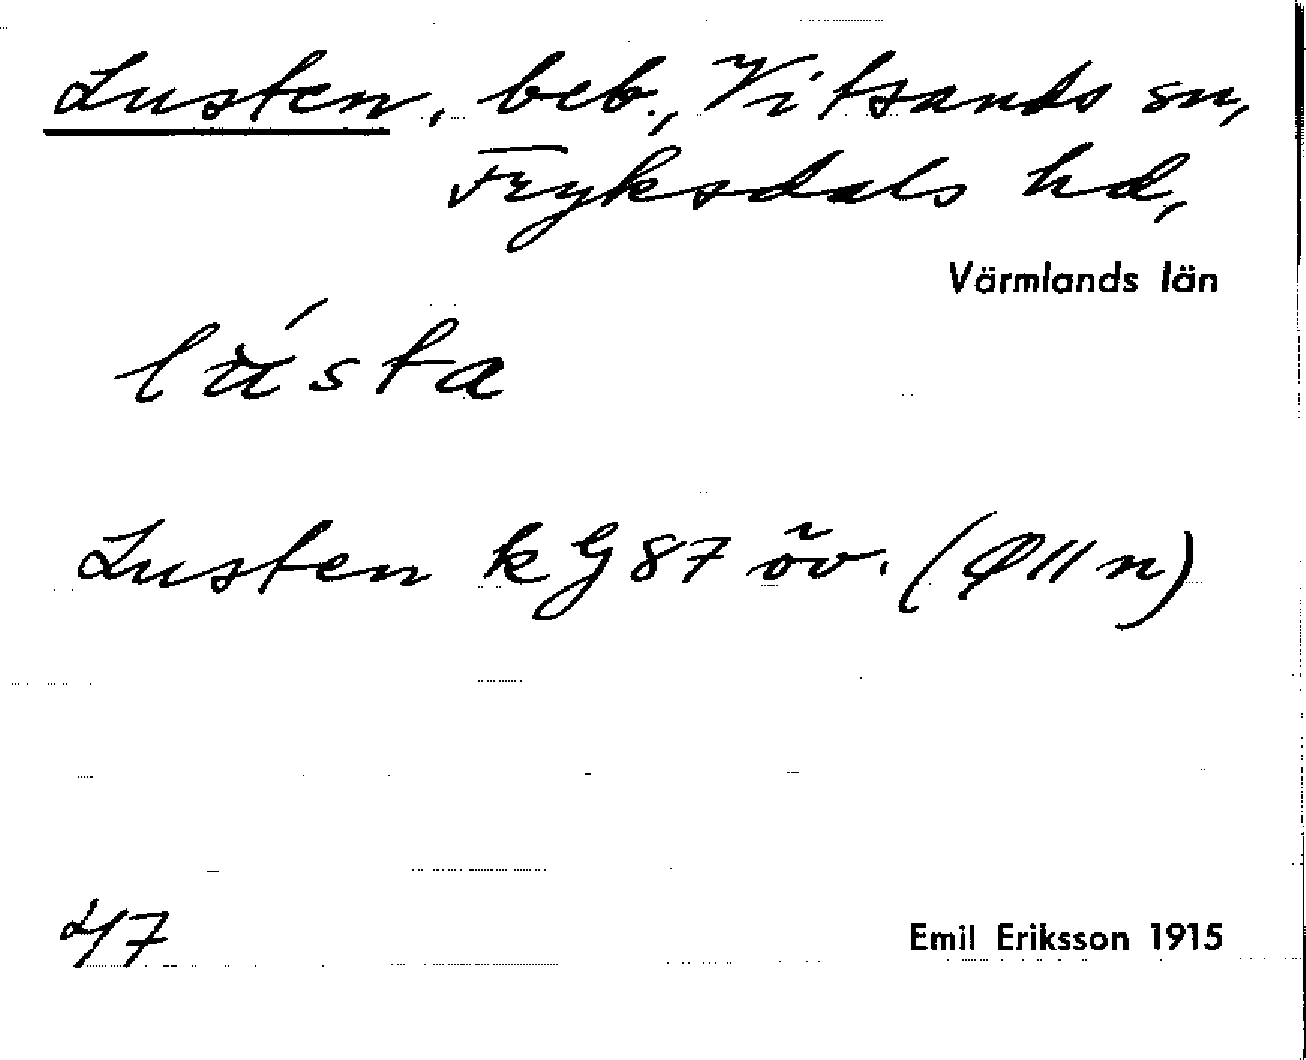 Lusten, beb., Vitsands sn,
Fryksdals hd,
Värmlands län
lústa
Lusten k G 87 öv. (Ø 11 n)
47
Emil Eriksson 1915